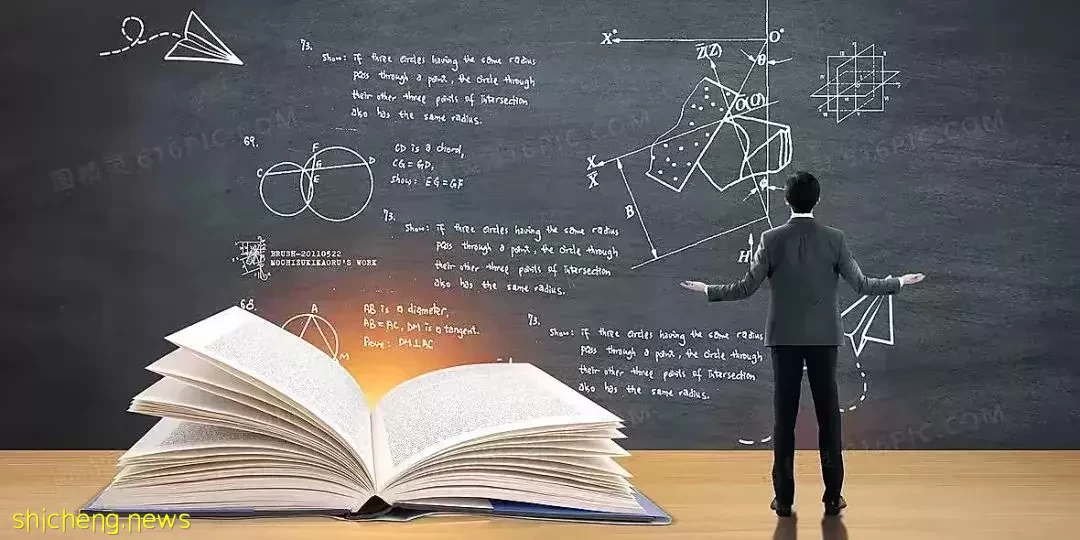 73.
show: if three circles having the same radius
pass through a point, the circle through
their other three points of intersection
also has the same radius.
69.
CD is a chord,
CG = GD,
show: EG = GF
C
F
G
E
D
73.
show: if three circles having the same radius
pass through a point, the circle through
their other three points of intersection
also has the same radius.
BRUSH-20110522
MOCHIZUKIKAORU'S WORK
68.
A
M
AB is a diameter,
AB = AC, DM is a tangent.
Prove: DM⊥AC
73.
show: if three circles having the same radius
pass through a point, the circle through
their other three points of intersection
also has the same radius.
X°
O°
Z(Z)
θ
O(O)
X
X
B
Φ
H
616PIC.COM
616PIC.COM
616PIC.COM
616PIC.COM
shicheng.news